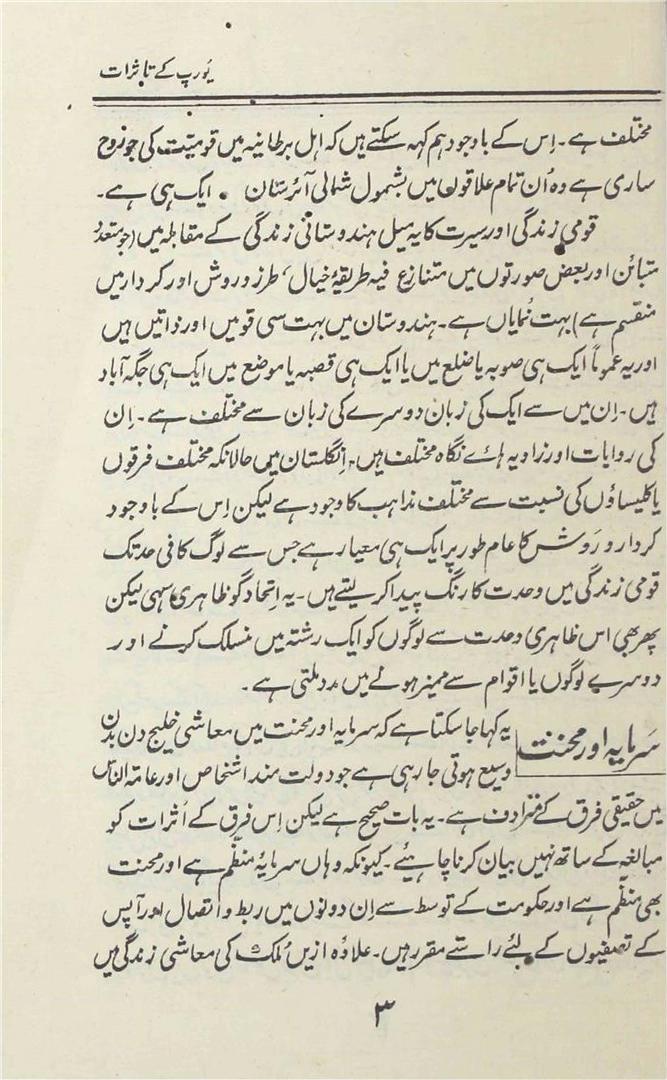 یورپ کے تاثرات
مختلف ہے۔ اِس کے باوجود ہم کہہ سکتے ہیں کہ اہل برطانیہ میں قومیّت کی جو رُوح
ساری ہے وہ اُن تمام علاقوں میں بشمول شمالی آئرستان ۔ ایک ہی ہے۔
قومی زندگی اور سیرت کا یہ میل ہندوستانی زندگی کے مقابلہ میں (جو متعدد
متبائن اور بعض صورتوں میں متنازع فیہ طریقۂ خیال، طرز و روش اور کردار میں
منقسم ہے) بہت نُمایاں ہے۔ ہندوستان میں بہت سی قومیں اور ذاتیں ہیں
اور یہ عموماً ایک ہی صوبہ یا ضلع میں یا ایک ہی قصبہ یا موضع میں ایک ہی جگہ آباد
ہیں۔ اِن میں سے ایک کی زبان دوسرے کی زبان سے مختلف ہے۔ اِن
کی روایات اور زاویہ ہائے نگاہ مختلف ہیں۔ اِنگلستان میں حالانکہ مختلف فرقوں
یا کلیساؤں کی نسبت سے مختلف مذاہب کا وجود ہے لیکن اِس کے باوجود
کردار و رَوش کا عام طور پر ایک ہی معیار ہے جس سے لوگ کافی حد تک
قومی زندگی میں وحدت کا رنگ پیدا کر لیتے ہیں۔ یہ اِتحاد گو ظاہری سہی لیکن
پھر بھی اس ظاہری وحدت سے لوگوں کو ایک رشتہ میں منسلک کرنے اور
دوسرے لوگوں یا اقوام سے ممیز ہونے میں مدد ملتی ہے۔
سَرمایہ اور محنت
یہ کہا جا سکتا ہے کہ سرمایہ اور محنت میں معاشی خلیج دن بدن
وسیع ہوتی جا رہی ہے جو دولت مند اشخاص اور عامۃ الناس
میں حقیقی فرق کے مترادف ہے۔ یہ بات صحیح ہے لیکن اِس فرق کے اَثرات کو
مبالغہ کے ساتھ نہیں بیان کرنا چاہیئے۔ کیونکہ وہاں سرمایۂ منظّم ہے اور محنت
بھی منظّم ہے اور حکومت کے توسط سے اِن دونوں میں ربط و اتصال اور آپس
کے تصفیوں کے لئے راستے مقرر ہیں۔ علاوہ ازیں مُلک کی معاشی زندگی میں
۳